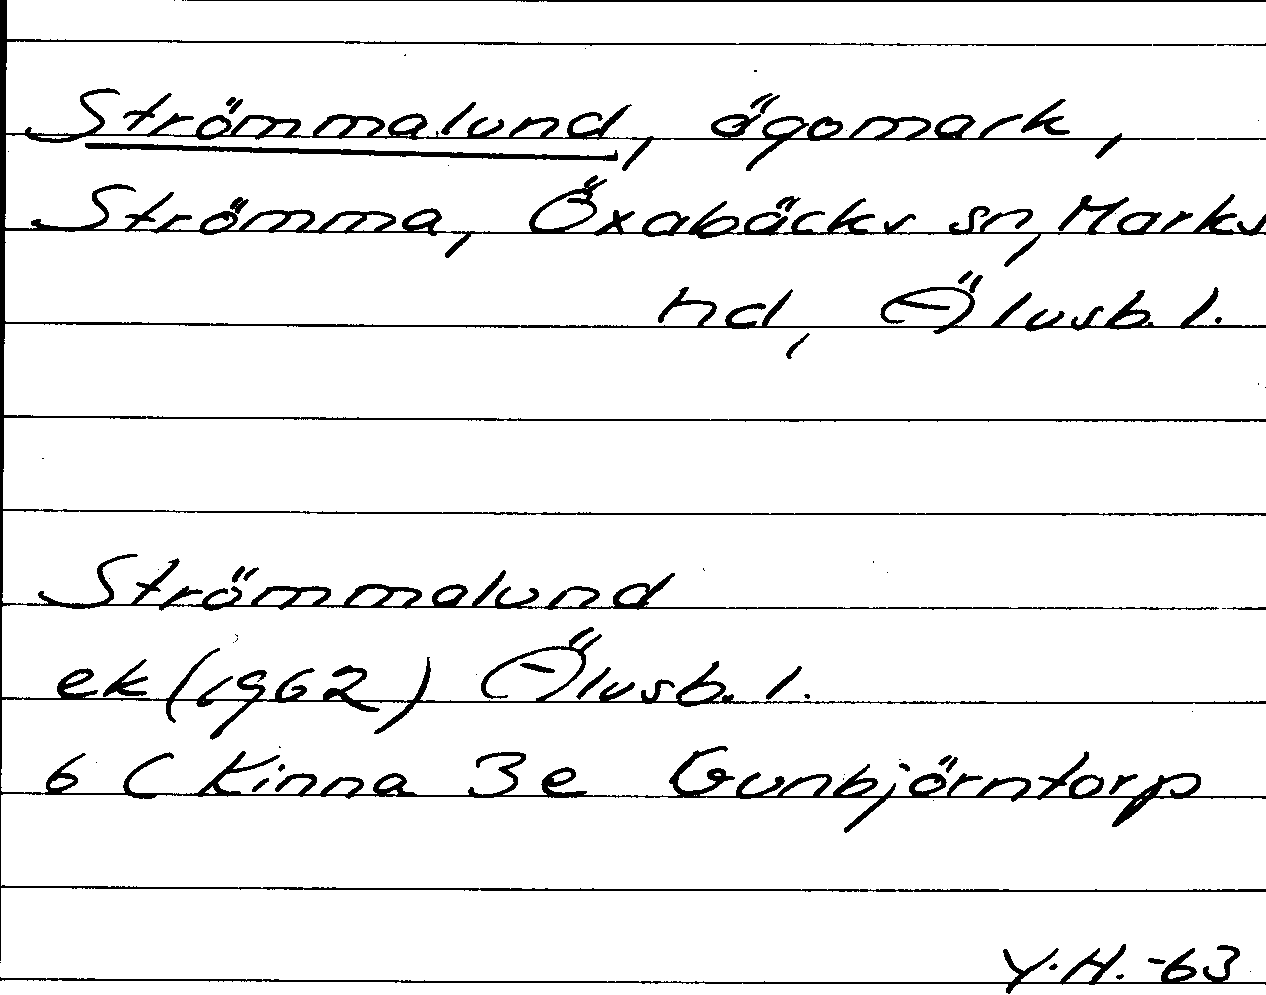 Strömmalund, ägomark,
Strömma, Öxabäcks sn, Marks
hd, Älvsb. l.
Strömmalund
ek (1962) Älvsb. l.
6 C Kinna 3e Gunbjörntorp
Y.H. -63